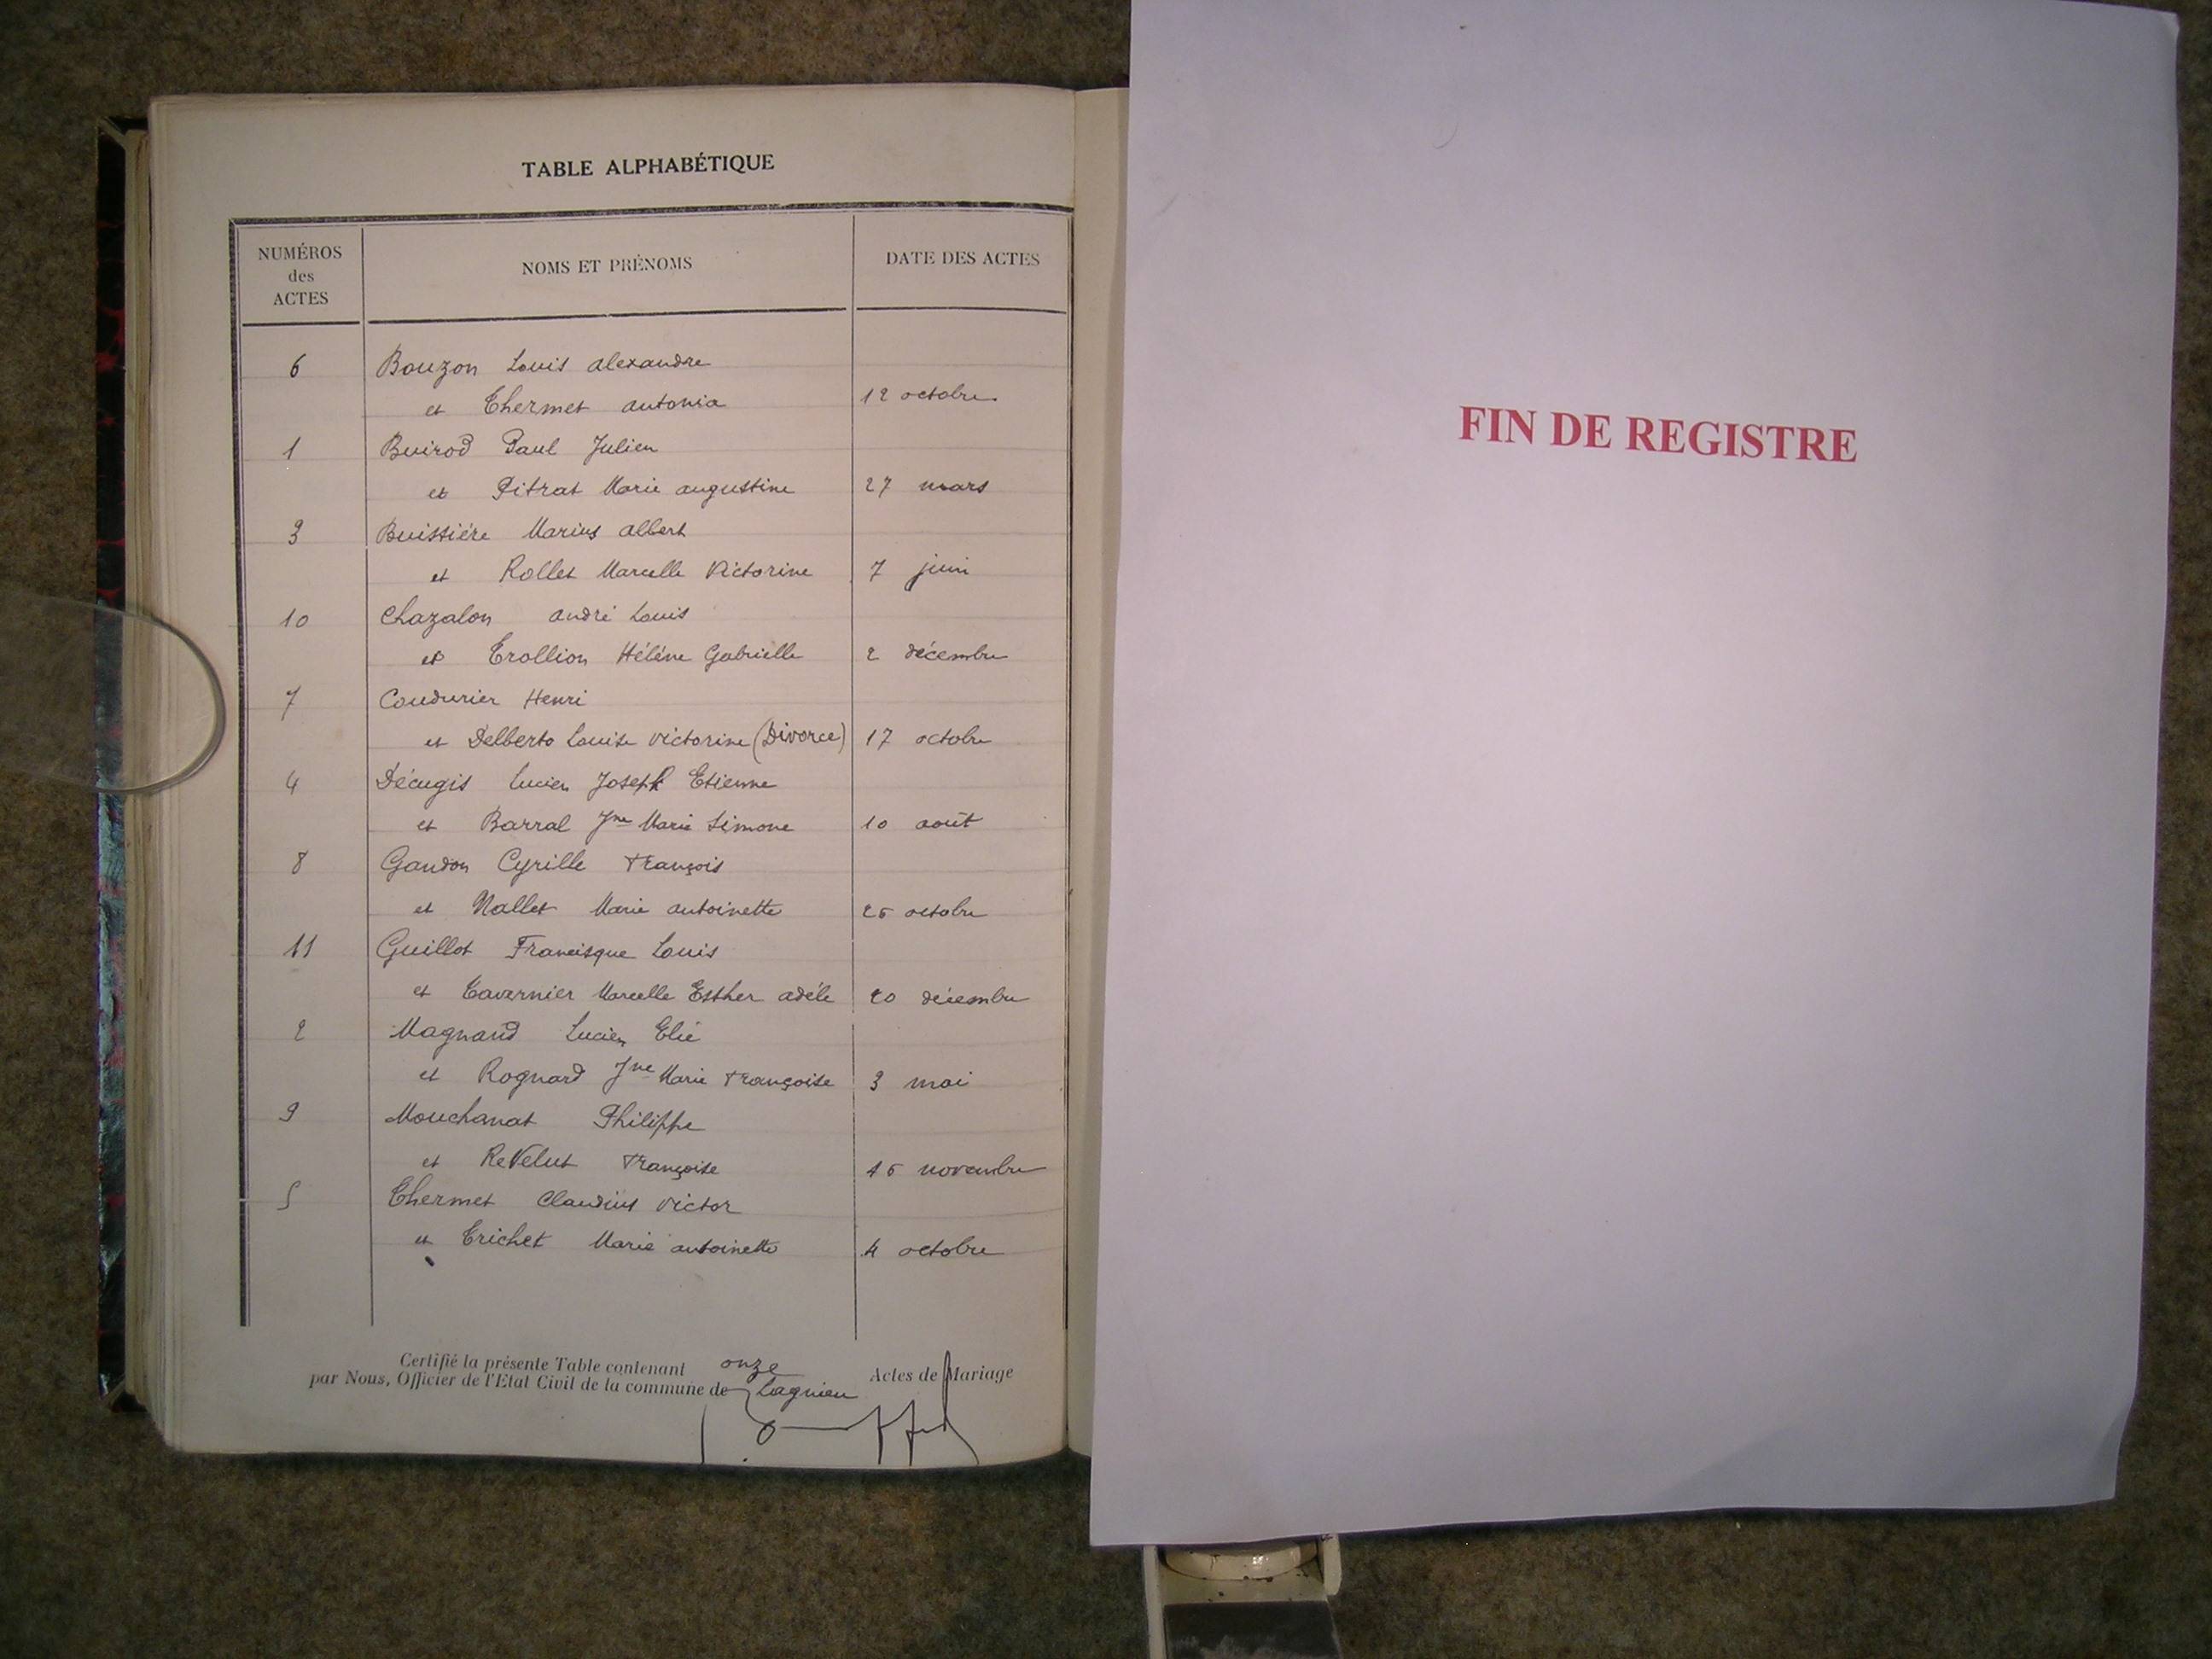 TABLE ALPHABÉTIQUE
NUMÉROS des ACTES NOMS ET PRÉNOMS DATE DES ACTES
6 Bouzon Louis Alexandre
et Thermet Antonia 12 octobre
1 Buirod Paul Julien
et Pitrat Marie Augustine 27 mars
3 Buissière Marius Albert
et Rollet Marcelle Victorine 7 juin
10 Chazalon André Louis
et Trollion Hélène Gabrielle 2 décembre
7 Coudurier Henri
et Delberto Louise Victorine (Divorce) 17 octobre
4 Décugis Lucien Joseph Etienne
et Barral Jne Marie Simone 10 août
8 Gandon Cyrille François
et Nallet Marie Antoinette 25 octobre
11 Guillot Francisque Louis
et Tavernier Marcelle Esther Adèle 20 décembre
2 Magnard Lucien Elie
et Rognard Jne Marie Françoise 3 mai
9 Mouchanat Philippe
et ReVelut Françoise 15 novembre
5 Thermet Claudius Victor
et Trichet Marie Antoinette 4 octobre
Certifié la présente Table contenant onze Actes de Mariage
par Nous, Officier de l'Etat Civil de la commune de Lagnieu
FIN DE REGISTRE